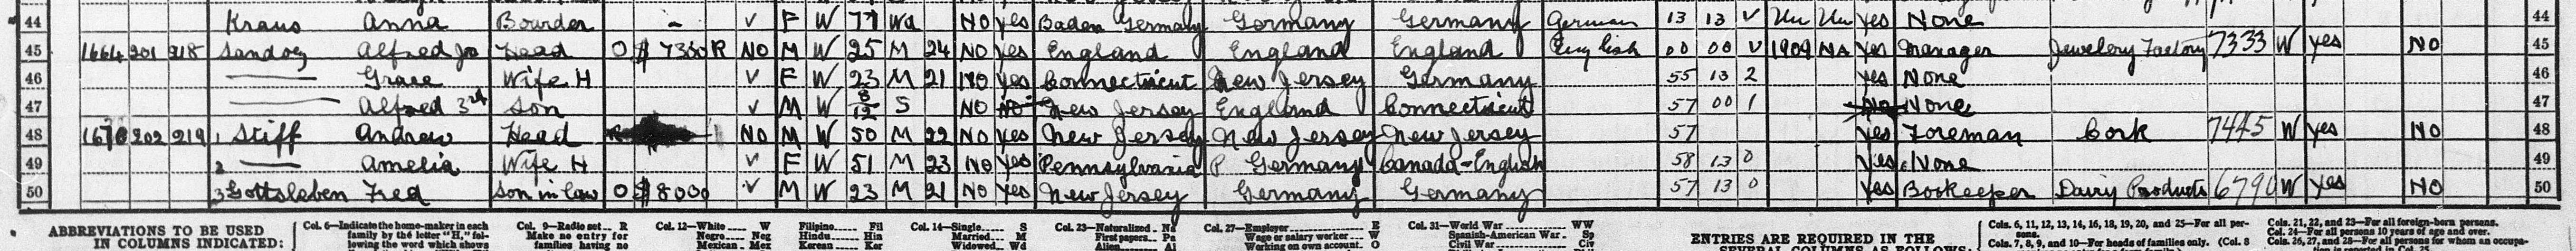 44 Kraus Anna Bourder - v F W 77 Wd NO yes Baden Germany Germany Germany German 13 13 V Un Un yes None 44
45 1664 201 218 Sandoz Alfred Jr Head O $ 7300 R NO M W 25 M 24 NO yes England England England English 00 00 V 1909 NA yes Manager Jewelery Factory 7333 W yes NO 45
46 —— Grace Wife H v F W 23 M 21 NO yes Connecticut New Jersey Germany 55 13 2 yes None 46
47 —— Alfred 3rd Son v M W 8/12 S NO New Jersey England Connecticut 57 00 1 None 47
48 202 219 1 Stiff Andrew Head NO M W 50 M 22 NO yes New Jersey New Jersey New Jersey 57 yes Foreman Cork 7445 W yes NO 48
49 2 —— Amelia Wife H v F W 51 M 23 NO yes Pennsylvania Germany Canada-English 58 13 0 yes None 49
50 3 Gottsleben Fred Son in law O $ 8000 v M W 23 M 21 NO yes New Jersey Germany Germany 57 13 0 yes Bookeeper Dairy Products W yes NO 50
ABBREVIATIONS TO BE USED
IN COLUMNS INDICATED:
Col. 6—Indicate the home-maker in each
family by the letter "H," fol-
lowing the word which shows
Col. 9—Radio set . R
Make no entry for
families having no
Col. 12—White .... W
Negro .... Neg
Mexican . Mex
Filipino .... Fil
Hindu .... Hin
Korean .... Kor
Col. 14—Single ........ S
Married ...... M
Widowed .. Wd
Col. 23—Naturalized . Na
First papers .. Pa
Alien .......... Al
Col. 27—Employer ................ E
Wage or salary worker ... W
Working on own account . O
Col. 31—World War ........... WW
Spanish-American War . Sp
Civil War ........... Civ
ENTRIES ARE REQUIRED IN THE
SEVERAL COLUMNS AS FOLLOWS:
Cols. 6, 11, 12, 13, 14, 16, 18, 19, 20, and 25—For all per-
sons.
Cols. 7, 8, 9, and 10—For heads of families only. (Col. 8
Cols. 21, 22, and 23—For all foreign-born persons.
Col. 24—For all persons 10 years of age and over.
Cols. 26, 27, and 28—For all persons for whom an occupa-
tion is reported in Col. 25.